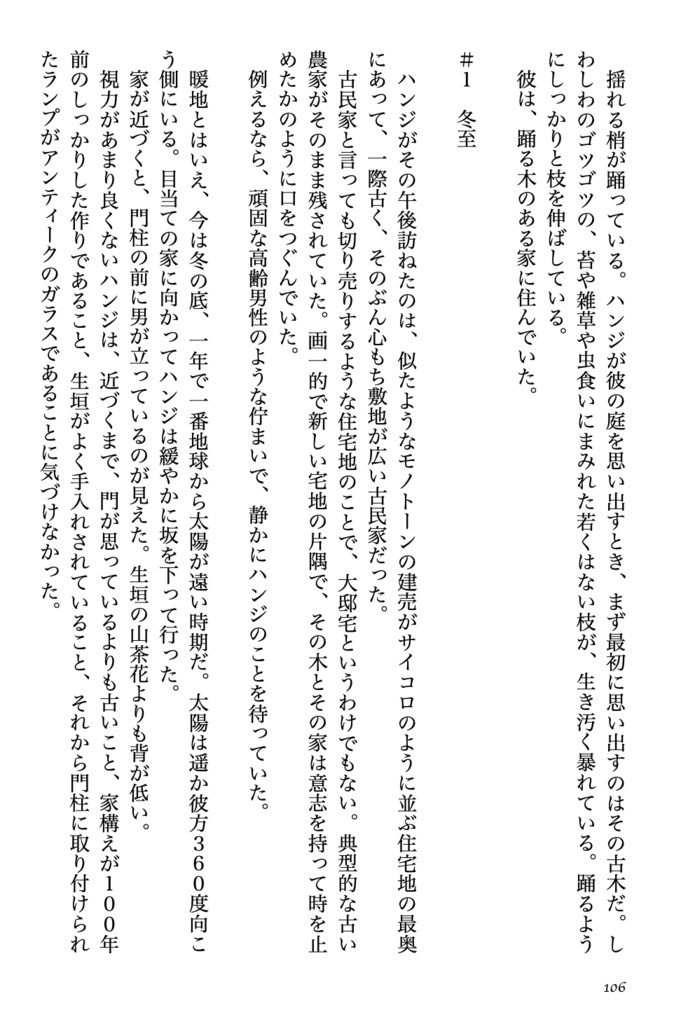 揺れる梢が踊っている。ハンジが彼の庭を思い出すとき、まず最初に思い出すのはその古木だ。し
わしわのゴツゴツの、苔や雑草や虫食いにまみれた若くはない枝が、生き汚く暴れている。踊るよう
にしっかりと枝を伸ばしている。
　彼は、踊る木のある家に住んでいた。
＃１　冬至
　ハンジがその午後訪ねたのは、似たようなモノトーンの建売がサイコロのように並ぶ住宅地の最奥
にあって、一際古く、そのぶん心もち敷地が広い古民家だった。
　古民家と言っても切り売りするような住宅地のことで、大邸宅というわけでもない。典型的な古い
農家がそのまま残されていた。画一的で新しい宅地の片隅で、その木とその家は意志を持って時を止
めたかのように口をつぐんでいた。
　例えるなら、頑固な高齢男性のような佇まいで、静かにハンジのことを待っていた。
　暖地とはいえ、今は冬の底、一年で一番地球から太陽が遠い時期だ。太陽は遥か彼方３６０度向こ
う側にいる。目当ての家に向かってハンジは緩やかに坂を下って行った。
　家が近づくと、門柱の前に男が立っているのが見えた。生垣の山茶花よりも背が低い。
　視力があまり良くないハンジは、近づくまで、門が思っているよりも古いこと、家構えが１００年
前のしっかりした作りであること、生垣がよく手入れされていること、それから門柱に取り付けられ
たランプがアンティークのガラスであることに気づけなかった。
106